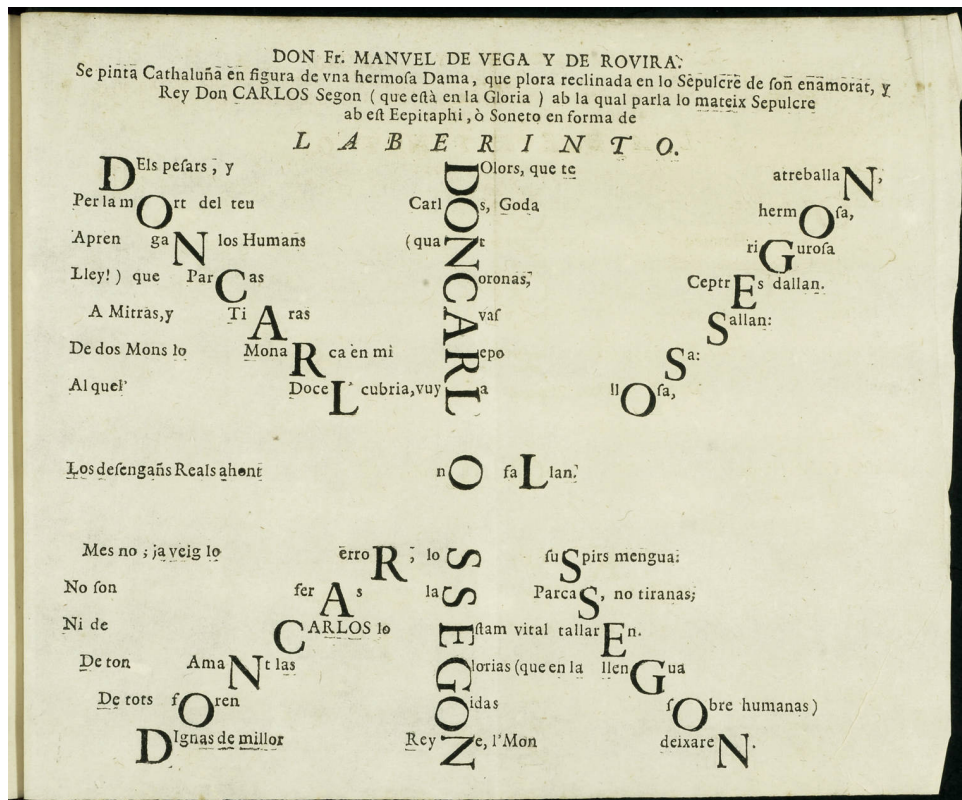 DON Fr. MANVEL DE VEGA Y DE ROVIRA.
Se pinta Cathaluña en figura de vna hermoſa Dama, que plora reclinada en lo Sepulcre de ſon enamorat, y
Rey Don CARLOS Segon (que eſtà en la Gloria) ab la qual parla lo mateix Sepulcre
ab eſt Eepitaphi, ò Soneto en forma de
LABERINTO.
DEls peſars, y DOlors, que te atreballaN,
Per la mOrt del teu CarlOs, Goda hermOſa,
Apren gaN los Humans (quaNt riGuroſa
Lley!) que ParCas Coronas, CeptrEs dallan.
A Mitras, y TiAras Avaſ Sallan:
De dos Mons lo MonaRca en mi Repo Sa:
Al quel' DoceL cubria, vuy La llOſa,
Los deſengañs Reals ahont nO faLlan.
Mes no; ja veig lo erroR; lo S ſuSpirs mengua:
No ſon ferAs laS ParcaS, no tiranas;
Ni de CARLOS lo Eſtam vital tallarEn.
De ton AmaNt las Glorias (que en la llenGua
De tots fOren Oidas ſObre humanas)
DIgnas de millor ReyNe, l'Mon deixareN.